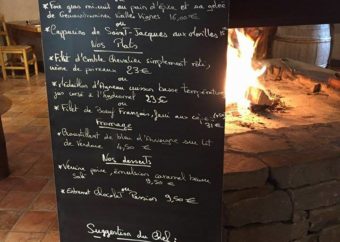 * Foie gras mi-cuit au pain d'épice et sa gelée
de Gewurztraminer Vieilles Vignes 16,00€
ou
* Capuccino de Saint-Jacques aux morilles 15
Nos Plats
* Filet d'Omble Chevalier simplement rôti,
crème de poireaux 23€
ou
* Médaillon d'Agneau cuisson basse température
jus corsé à l'Hydromel 23€
ou
* Filet de Bœuf Français, jus aux
31€
Fromage
* Croustillant de bleu d'Auvergne sur lit
de verdure 4,50 €
Nos desserts
* Verrine poire, émulsion caramel beurre
salé 9,50 €
ou
* Entremet Chocolat Passion 9,50 €
Suggestion du Chef :